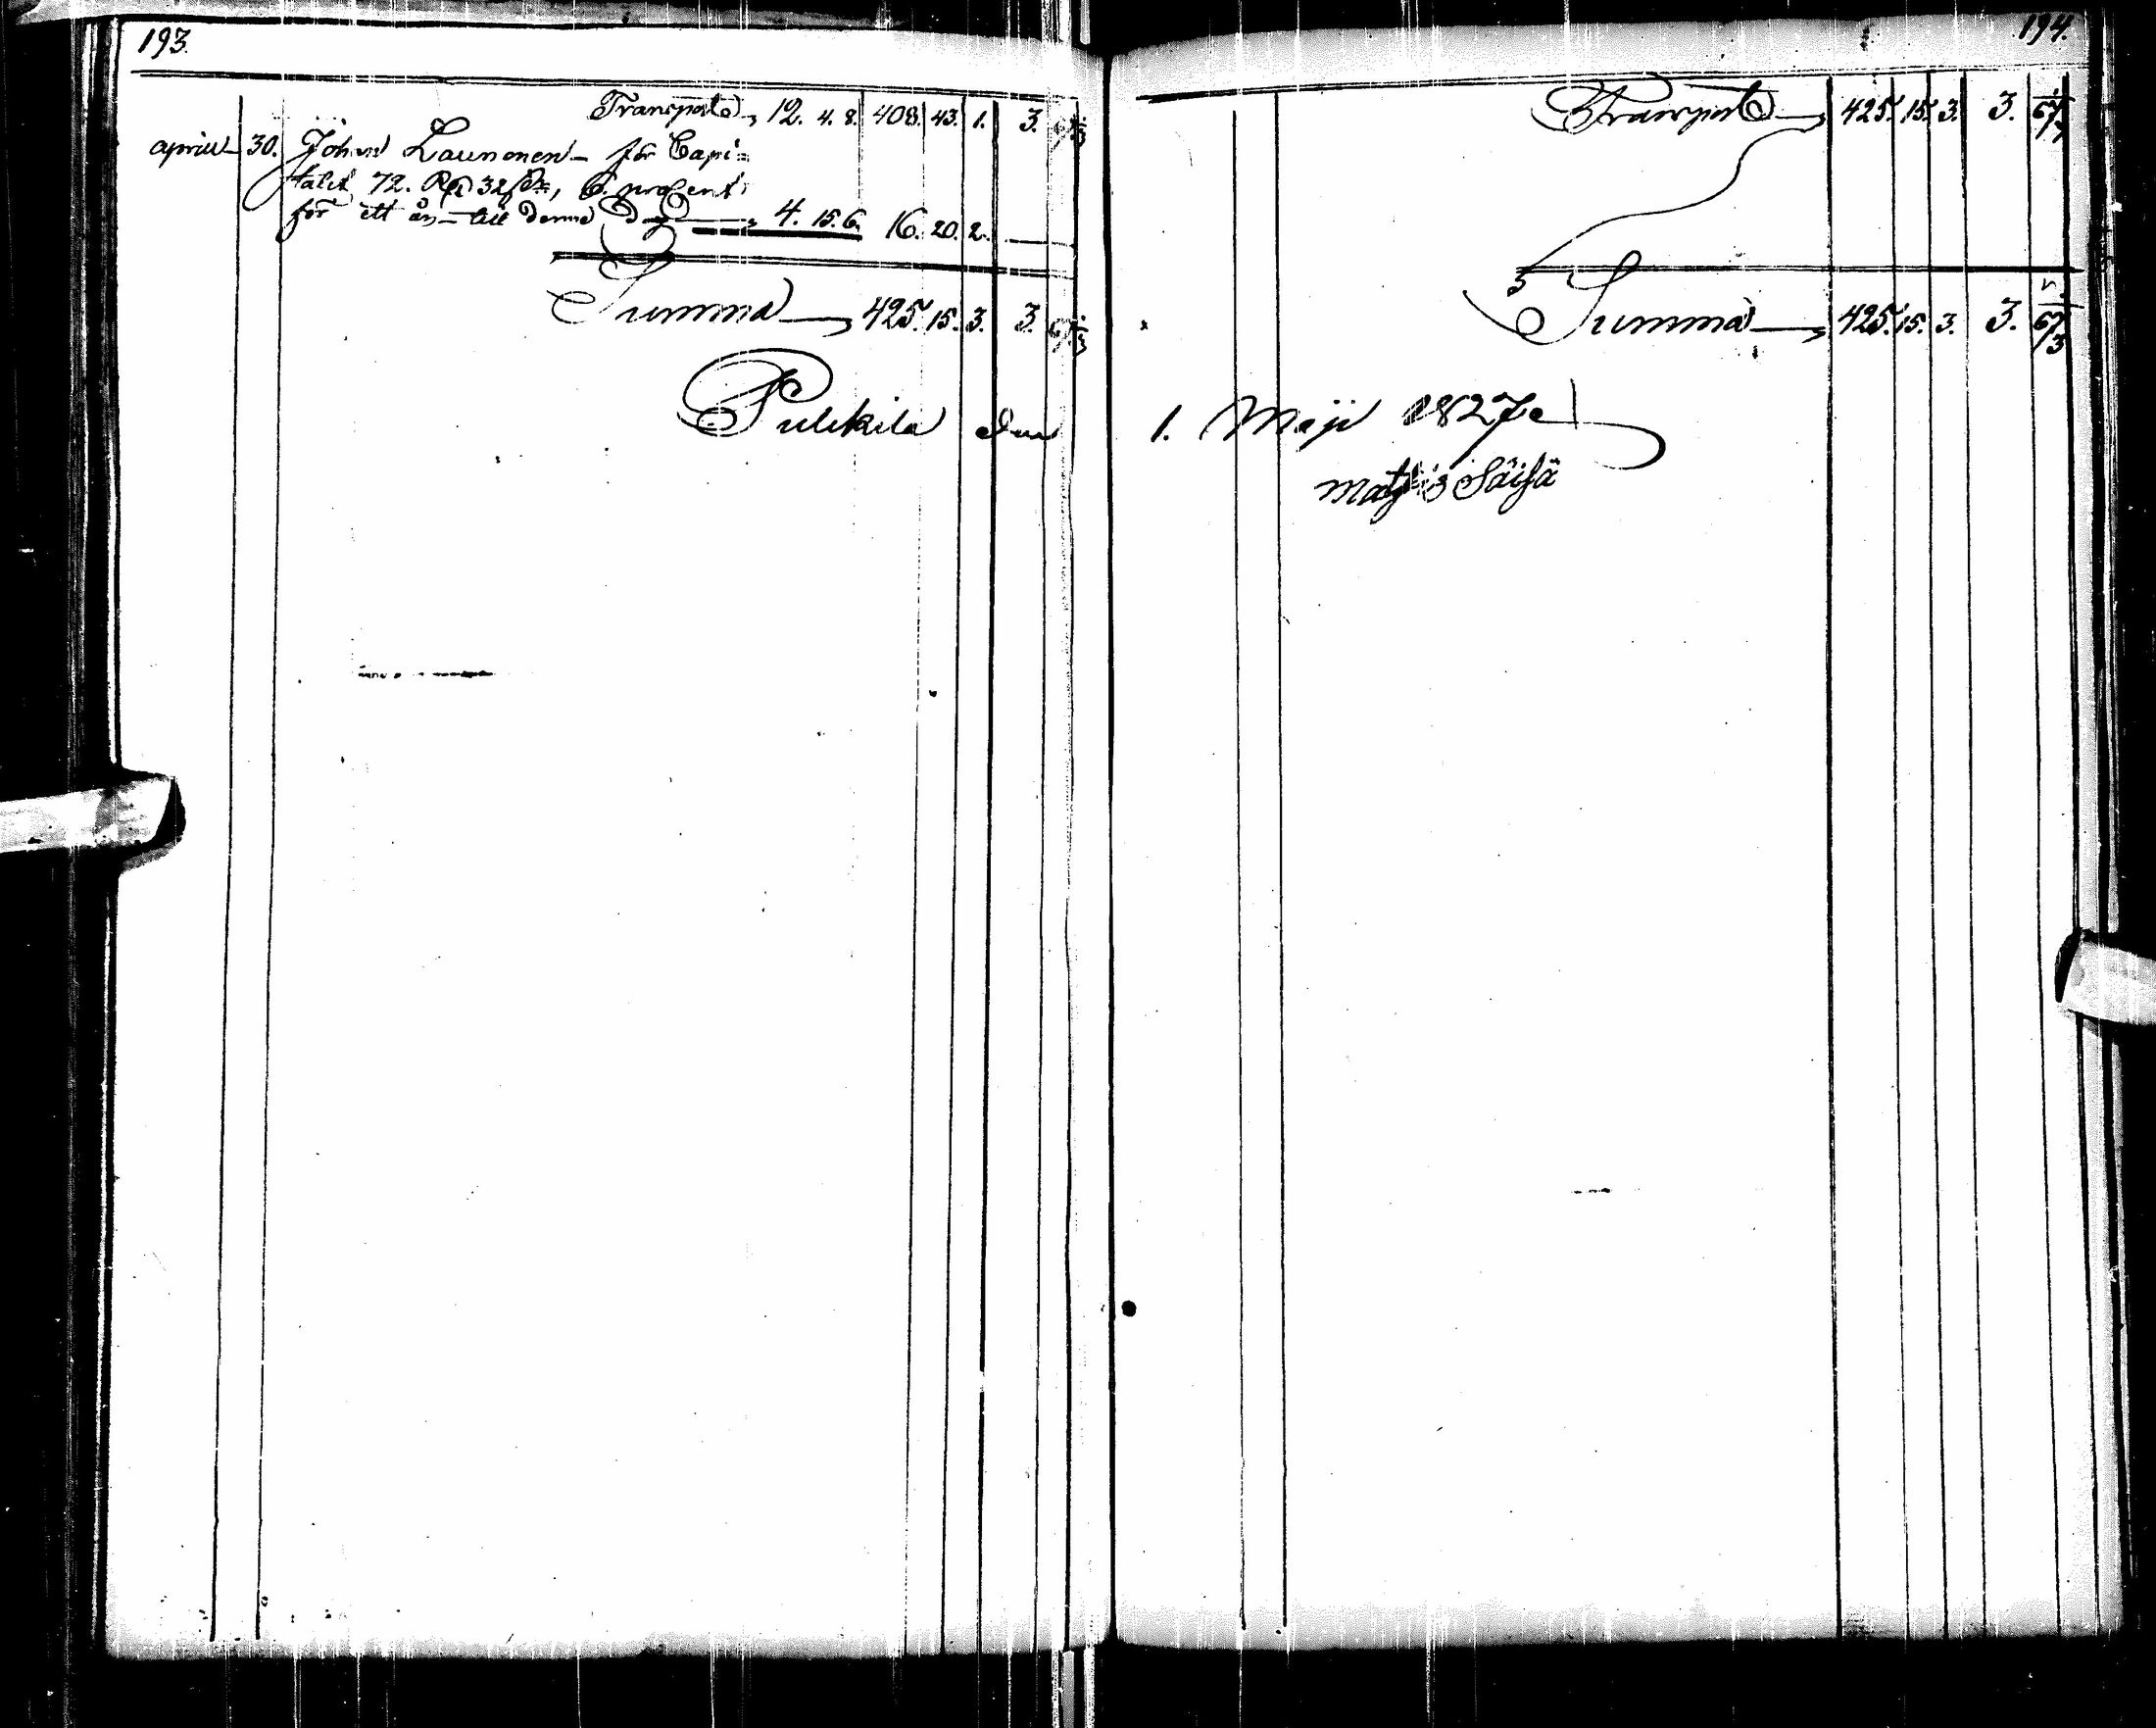 193.
Transport 12. 4. 8. 408. 43. 1. 3.
April 30. Johan Launonen för Capi=
talet 72. R 32, 6. procent
för ett år till denna dag 4. 15. 6. 16. 20. 2.
Summa 425. 15. 3. 3.
Pulkila den
194.
Transport 425. 15. 3. 3. 67
Summa 425. 15. 3. 3. 67
1. Maji 1827
Matts Säisä